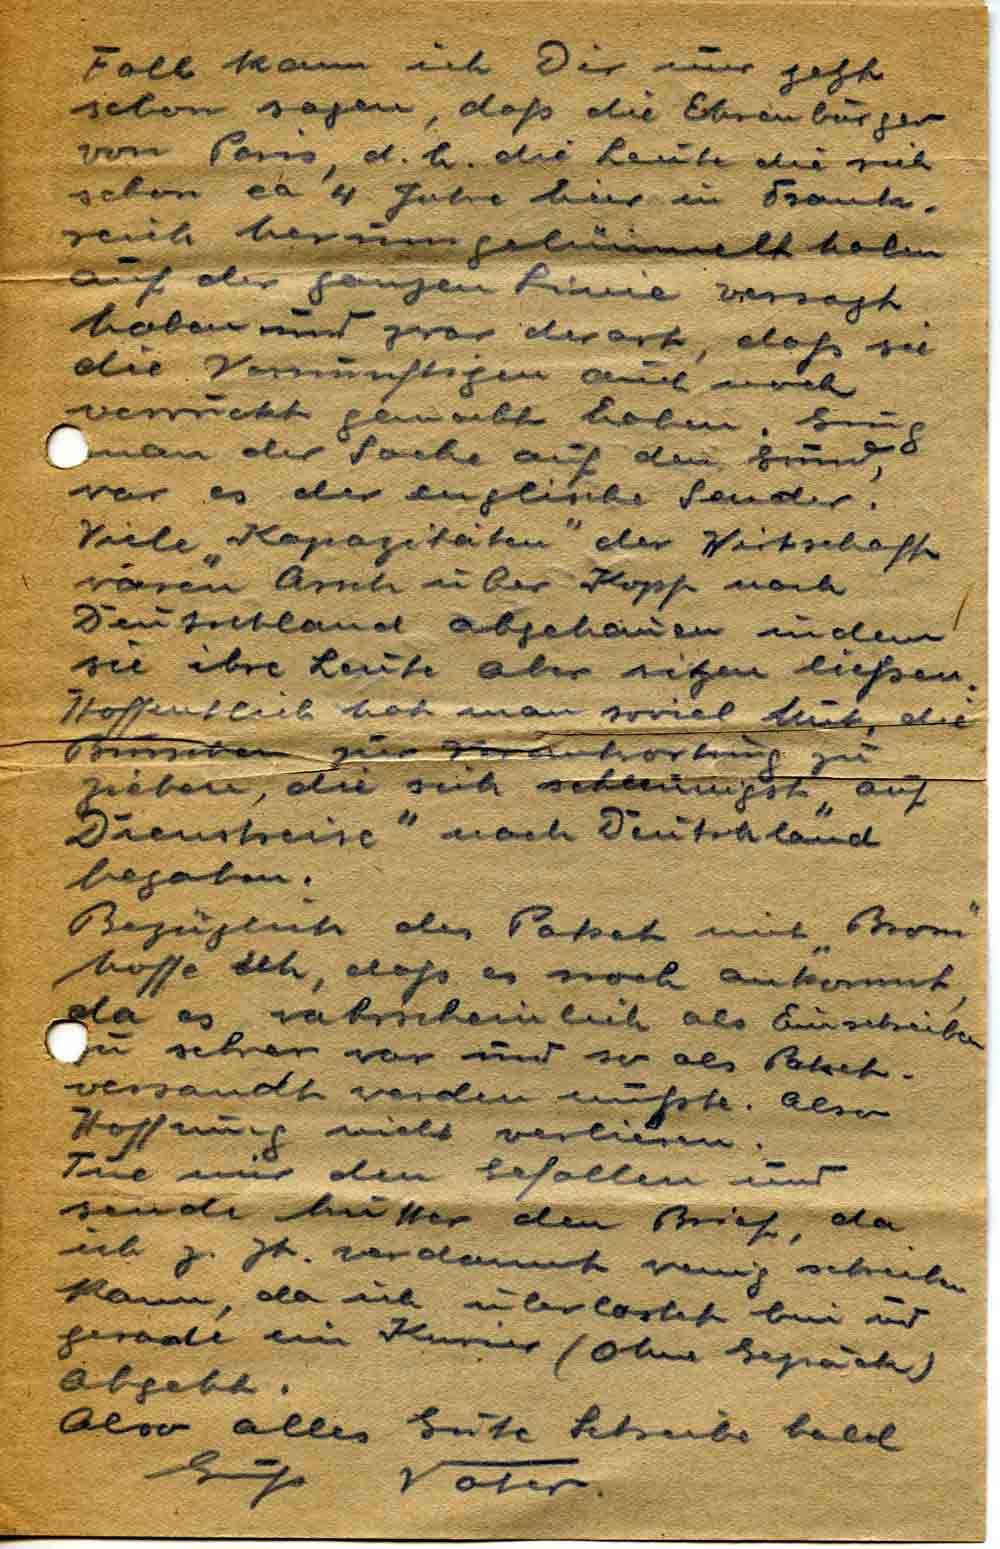 Fall kann ich Dir nur jetzt
schon sagen, daß die Ehrenbürger
von Paris, d. h. die Leute die sich
schon ca 4 Jahre hier in Frank-
reich herumgelümmelt haben
auf der ganzen Linie versagt
haben und zwar derart, daß sie
die Vernünftigen auch noch
verrückt gemacht haben. Ging
man der Sache auf den Grund,
war es der englische Sender.
Viele „Kapazitäten" der Wirtschaft
wären Arsch über Kopf nach
Deutschland abgehauen indem
sie ihre Leute aber sitzen ließen.
Hoffentlich hat man soviel Mut, die
Burschen zur Verantwortung zu
ziehen, die sich schleunigst „auf
Dienstreise" nach Deutschland
begaben.
Bezüglich des Paket mit „Brom"
hoffe ich, daß es noch ankommt,
da es wahrscheinlich als Einschreiben
zu schwer war und so als Paket
versandt werden mußte. Also
Hoffnung nicht verlieren.
Tue mir den Gefallen und
sende Mutter den Brief, da
ich z. Zt. verdammt wenig schreiben
kann, da ich überlastet bin und
gerade ein Kurier (ohne Gepäck)
abgeht.
Also alles Gute Schreibe bald
Gruß Vater.